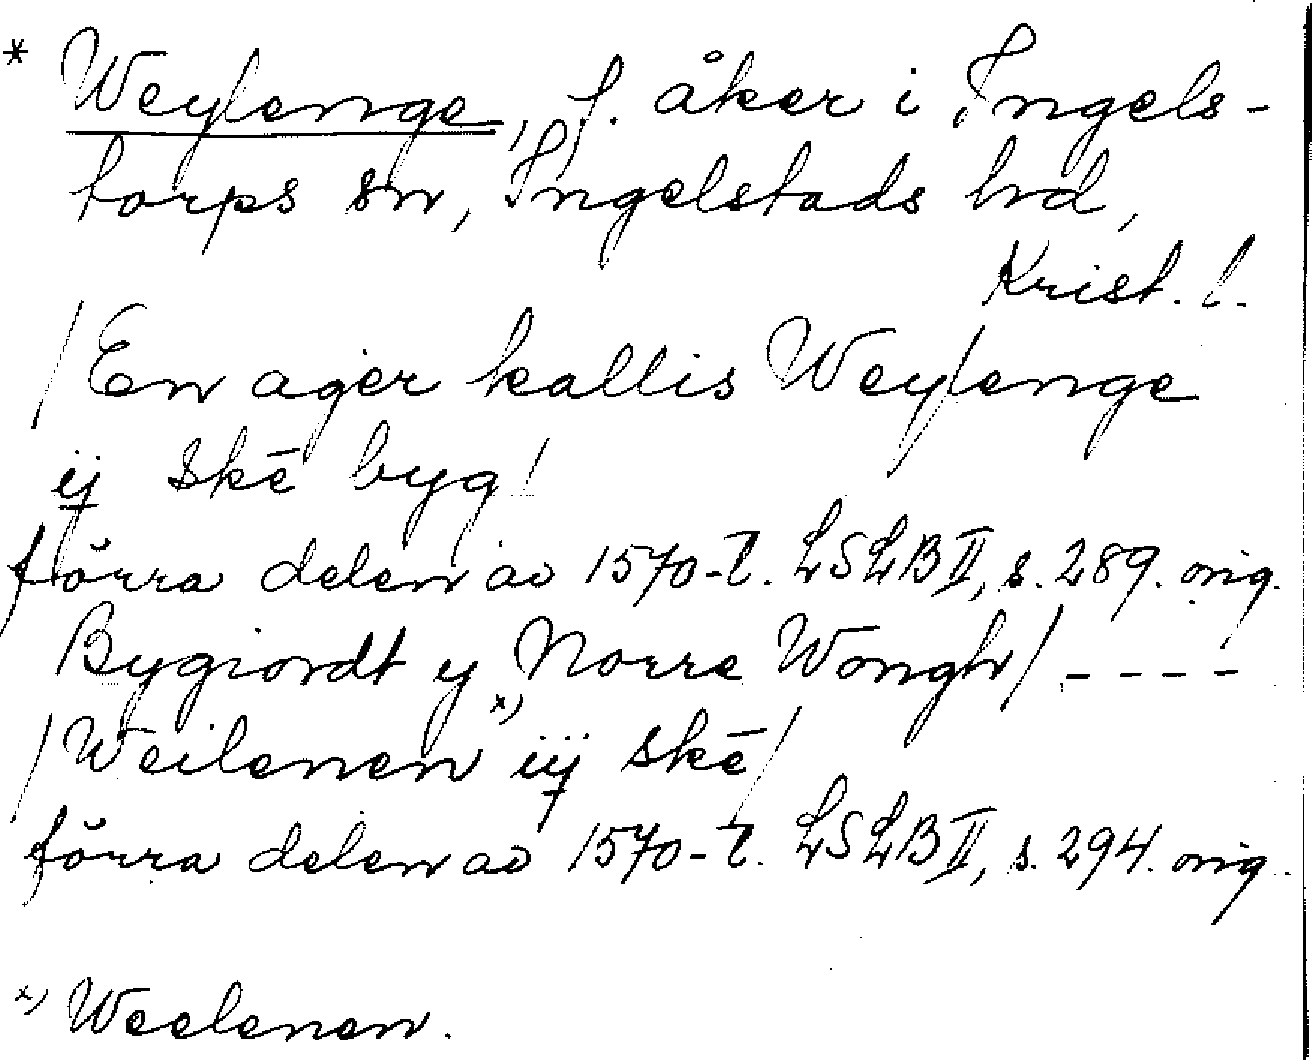 * Weylenge, f. åker i Ingels-
torps sn, Ingelstads hd,
Krist. l.
/En ager kallis Weylenge
ij skē byg/
förra delen av 1570-t. LSLB II, s. 289. orig.
Bygiordt y Norre Wongh/ ----
/Weilenen x) iij skē/
förra delen av 1570-t. LSLB II, s. 294. orig.
x) Weelenen.